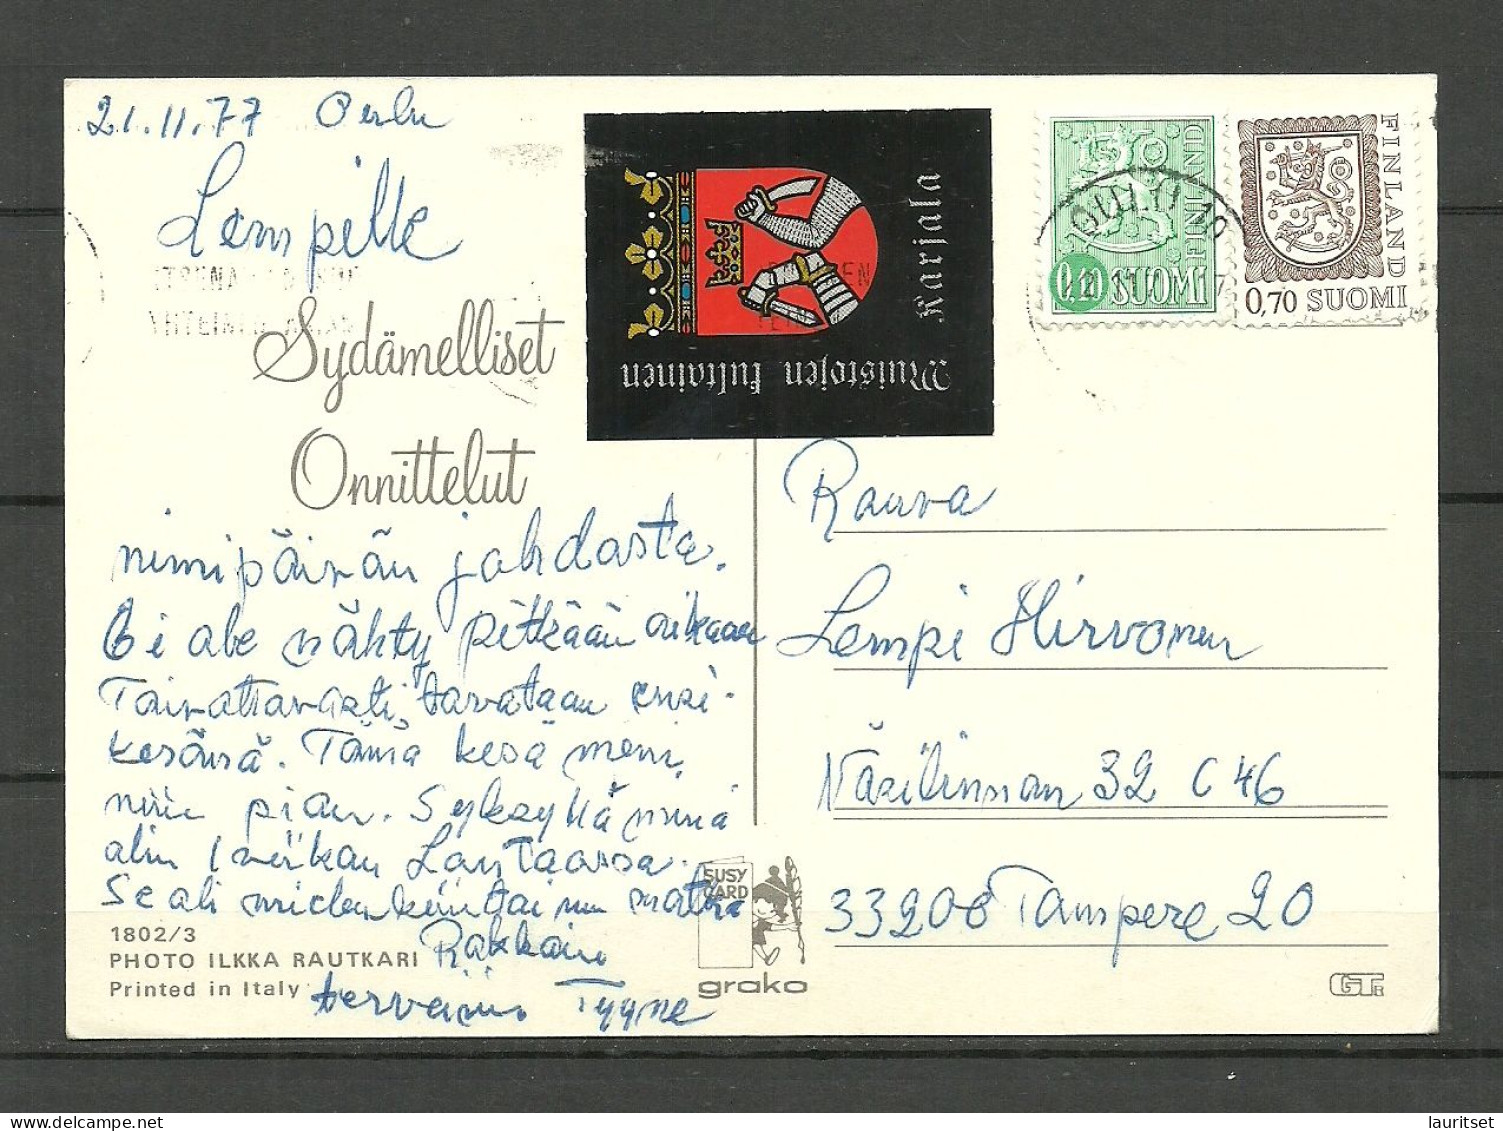 21.11.77 Oulu
Lempille
Sydämelliset
Onnittelut
nimipäivän johdosta.
Ei ole nähty pitkään aikaan
Toivottavasti tavataan ensi-
kesänä. Tämä kesä meni
niin pian. Syksyllä minä
olin 1 viikon Lautaassa.
Se oli mielenkiintoinen matka
Rakkain
terveisin Tyyne
1802/3
PHOTO ILKKA RAUTKARI
Printed in Italy
SUSY
CARD
grako
Muistojen kultainen
Karjala
0,10 SUOMI
FINLAND
0,70 SUOMI
FINLAND
OULU 10
Rouva
Lempi Hirvonen
Näsilinnan 32 C 46
33200 Tampere 20
GT
lauritset